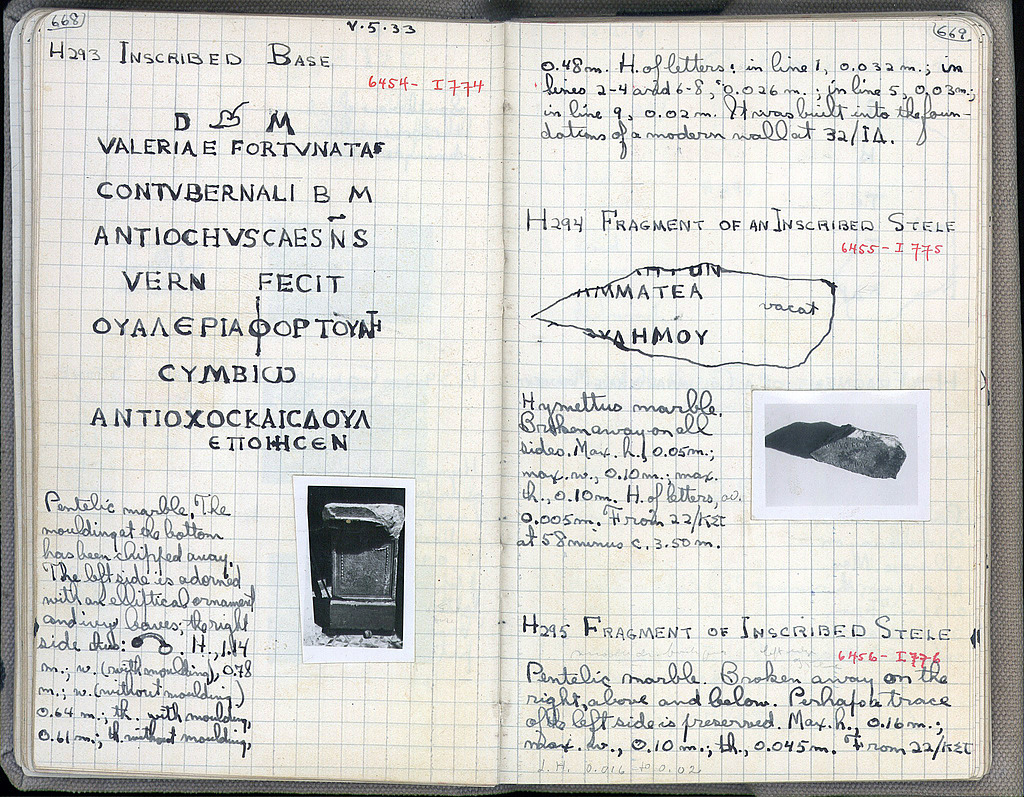 668
V.5.33
H293 INSCRIBED BASE
6454- I 774
D M
VALERIAE FORTVNATAE
CONTVBERNALI B M
ANTIOCHVS CAES N̅ S
VERN FECIT
ΟΥΑΛΕΡΙΑ ΦΟΡΤΟΥΝ
CΥΜΒΙѠ
ΑΝΤΙΟΧΟC ΚΑΙC ΔΟΥΛ
ЄΠΟΙΗCЄΝ
Pentelic marble. The
moulding at the bottom
has been chipped away.
The left side is adorned
with an elliptical ornament
and ivy leaves; the right
side thus: . H., 1.14
m.; w. (with moulding), 0.78
m.; w. (without moulding)
0.64 m.; th. with moulding,
0.61 m.; th. without moulding,
669
0.48m. H. of letters: in line 1, 0.032 m.; in
lines 2-4 and 6-8, 0.026 m.; in line 5, 0.03m.;
in line 9, 0.02 m. It was built into the foun-
dations of a modern wall at 32/ΙΔ.
H294 FRAGMENT OF AN INSCRIBED STELE
6455- I 775
ΜΜΑΤΕΑ
vacat
ΥΛΗΜΟΥ
Hymettus marble.
Broken away on all
sides. Max. h., 0.05m.;
max. w., 0.10m.; max.
th., 0.10m. H. of letters, av.
0.005m. From 22/ΚΣΤ
at 58 minus c. 3.50 m.
H295 FRAGMENT OF INSCRIBED STELE
6456- I 776
Pentelic marble. Broken away on the
right, above and below. Perhaps a trace
of the left side is preserved. Max. h., 0.16m.;
max. w., 0.10m.; th., 0.045m. From 22/ΚΣΤ
L.H. 0.016 to 0.02